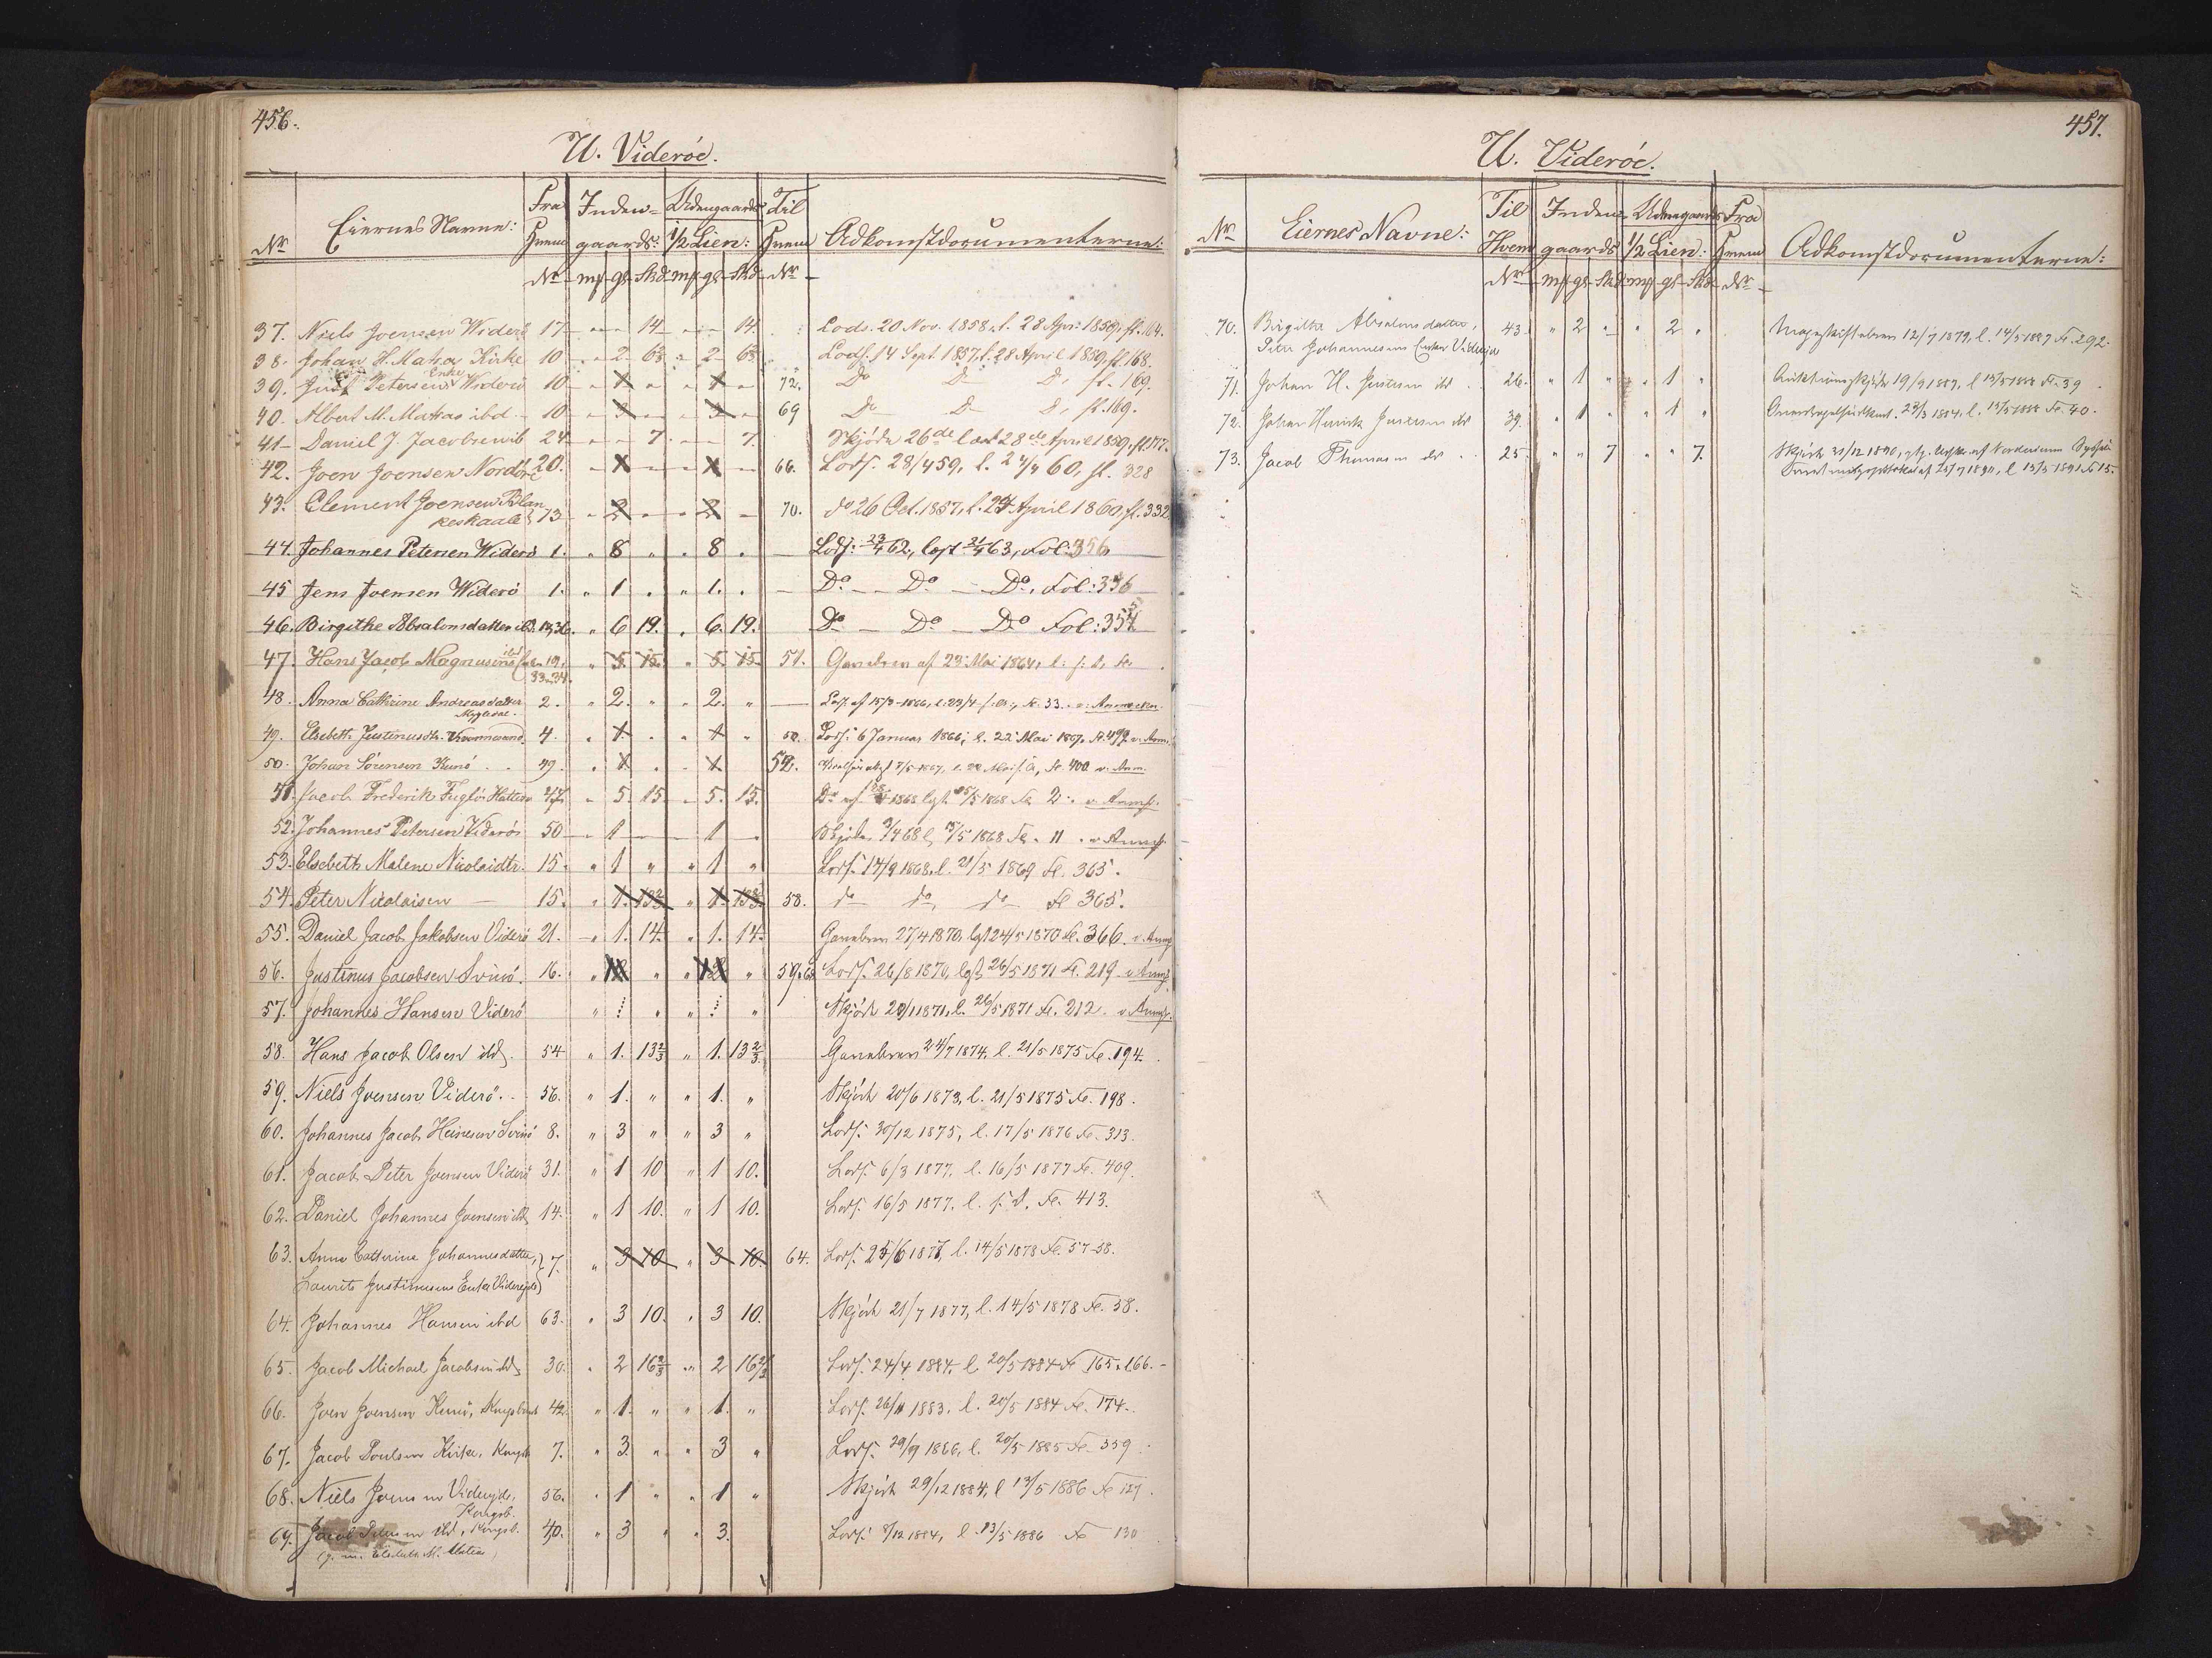 456.
U. Videröe.
Nr. Eiernes Navne: Fra Hvem Nr. Indengaards: mk gl. Skd. Udengaards 1/2 Lien: mk gl. Skd. Til Hvem Nr. Adkomstdocumenterne:
37. Niels Joensen Viderö 17 14 14. Lods. 20 Nov. 1858, l. 28 Apr. 1859, fl. 164.
38. Johan H. Matras Kirke 10 2 6 2/3 2 6 2/3 Lodf. 14 Sept. 1857, l. 28 April 1859, fl. 168.
39. Petersens Enke Widerö 10 1 1 72. Do Do Do fl. 169.
40. Albert M. Matras ibd. 10 3 3 69 Do Do Do fl. 169.
41 Daniel J. Jacobsen ib 24 7. 7. Skjöde 26de læst 28de April 1859, fl. 177.
42. Joen Joensen Nordöre 20. 1 1 66. Lodf. 28/4 59, l. 24/4 60, fl. 328
43. Clement Joensen Blankeskaale 13 2 2 70. do 26 Oct. 1857, l. 24 April 1860, fl. 332.
44. Johannes Petersen Widerö 1. 8 8 Lodf: 23/4 62, læst 21/4 63, Fol: 356
45 Jens Joensen Widerö 1. 1 1. Do Do Do, Fol: 356
46. Birgithe Absalonsdatter ibd. 13, 36. 6 19. 6. 19. Do Do Do Fol: 357
47. Hans Jacob Magnussen ibd 19, 33 34. 5. 15. 5. 15. 51. Gavebrev af 23 Mai 1864, l. s. D.
48. Anna Cathrine Andreasdatter Mygledal. 2. 2. 2. Lodf. af 15/3 1866, l. 23/4 s. A., Fl. 33. v. Anmærkn.
49. Elsebeth Justinusdtr. Kvannesund 4. 1 1 50. Lodf. 6 Januar 1866, l. 22 Mai 1867, Fl. 499 v. Anm.
50. Johan Sörensen Kunö 49. 1 1 52. 7/5 1867, l. 22 Mai s. A, Fl. 400 v. Anm.
51. Jacob Frederik Fuglö Hattervig 47. 5. 15 5. 15. Do af 1868 lgst. 15/5 1868 Fl. 2. v. Anmk.
52. Johannes Petersen Viderö 50 1 1 Skjöde 3/4 68 l. 15/5 1868 Fl. 11 v Anmk.
53. Elsebeth Malene Nicolaidtr. 15. 1 1 Lodf. 14/9 1868, l. 21/5 1869 Fl. 365.
54. Peter Nicolaisen 15. 1. 13 2/3 1. 13 2/3 58. do do, do Fl 365.
55. Daniel Jacob Jakobsen Viderö 21. 1. 14. 1. 14. Gavebrev 27/4 1870, lgst 24/5 1870 Fl. 366. v. Anmk
56. Justinus Jacobsen Svinö. 16. 59, 68 Lodf. 26/8 1870, lgst, 26/5 1871 Fl. 219 v. Anmk.
57. Johannes Hansen Viderö Skjöde 20/1 1871, l. 26/5 1871 Fl. 212. v. Anmk.
58. Hans Jacob Olsen ibd. 54 1. 13 2/3 1. 13 2/3. Gavebrev 24/7 1874, l. 21/5 1875 Fl. 194.
59. Niels Joensen Viderö. 56. 1. 1. Skjöde 20/6 1873, l. 21/5 1875 Fl. 198.
60. Johannes Jacob Heinesen Svinö 8. 3 3 Lodf. 30/12 1875, l. 17/5 1876 Fl. 313.
61. Jacob Peter Joensen Viderö 31. 1 10 1 10. Lodf. 6/3 1877, l. 16/5 1877 Fl. 409.
62. Daniel Johannes Joensen ibd. 14. 1 10. 1 10. Lodf. 16/5 1877. l. s. D. Fl. 413.
63. Anna Cathrine Johannesdatter, 7. 3 10 3 10. 64. Lodf. 25/6 1877, l. 14/5 1878 Fl. 57-58.
Laurits Justinusens Enke Videreide
64. Johannes Hansen ibd 63. 3 10. 3 10. Skjöde 21/7 1877, l. 14/5 1878 Fl. 58.
65. Jacob Michael Jacobsen ibd. 30. 2 16 2/3 2 16 2/3 Lodf. 24/4 1884, l. 20/5 1884 Fl 165, 166.
66. Joen Joensen Kunö, Kongsb. 42. 1. 1. Lodf. 26/11 1883. l. 20/5 1884 Fl. 174.
67. Jacob Poulsen Kirke, Kongsb. 7. 3. 3 Lodf. 29/9 1866, l. 20/5 1885 Fl. 359.
68. Niels Joensen Videreide, Kongsb. 56. 1 1 Skjöde 29/12 1884, l 13/5 1886 Fl 127.
69. Jacob ibd, Kongsb. 40. 3 3. Lodf. 8/12 1884, l. 13/5 1886 Fl 130
(g. m. Elsebeth M. Matras)
457.
U. Videröe.
Nr. Eiernes Navne: Til Hvem Nr. Indengaards mk gl. Skd. Udengaards 1/2 Lien: mk gl. Skd. Fra Hvem Nr. Adkomstdocumenterne:
70. Birgithe Absalonsdatter, 43. 2 2 Mageskiftebrev 12/7 1879, l. 14/5 1887 Fl. 292.
Peter Johannesens Enke Videreide
71. Johan H. Justesen ibd 26. 1 1 Auktionsskjöde 19/9 1887, l 15/5 1888 Fl. 39.
72. Johan Henrik Justesen ibd 39. 1 1 23/3 1854, l. 15/5 1888 Fl. 40.
73. Jacob Thomasen do 25. 7 7. Skjöde 31/12 1890, Udskr. af Norderöernes Syssels
af 25/7 1890, l 13/5 1891 Fl 15.